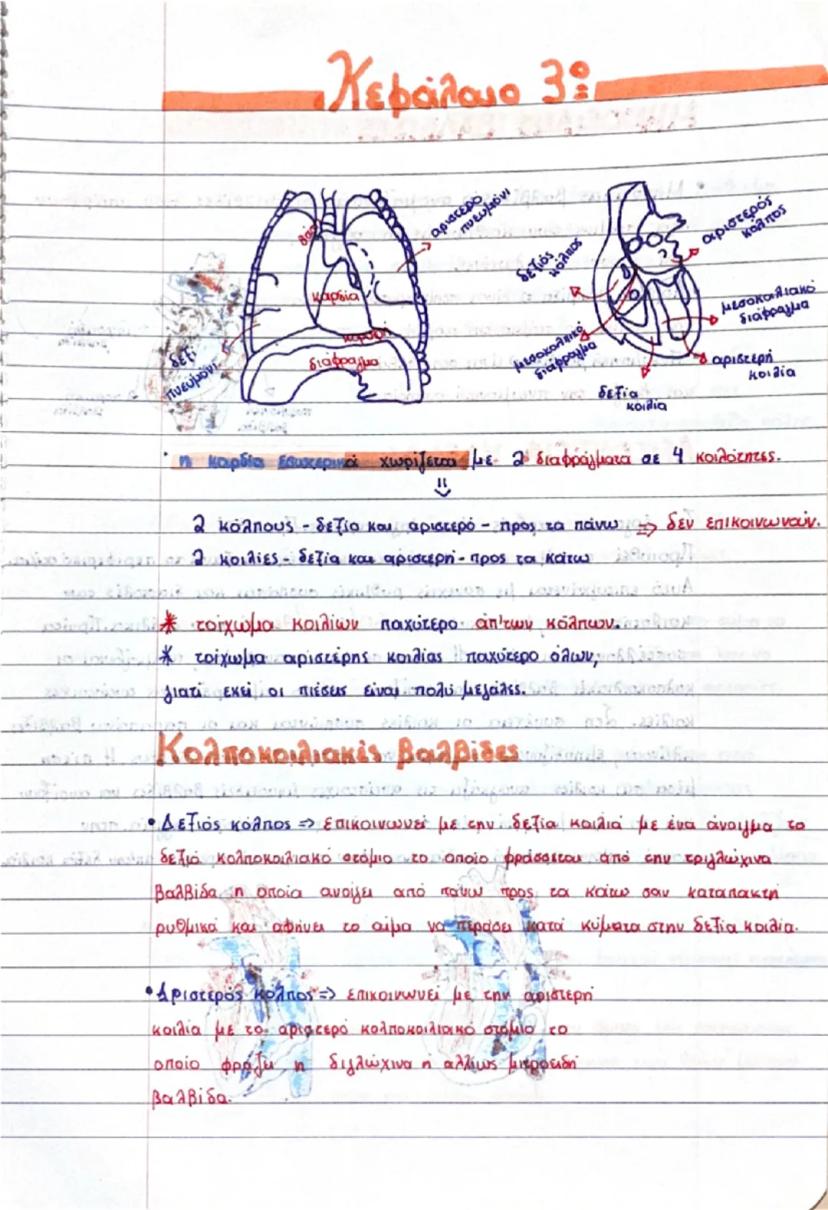 Κεφάλαιο 3ο:
αριστερό
πνευμόνι
καρδία
διάφραγμα
δεξί
πνευμόνι
δεξιός
κόλπος
αριστερός
κόλπος
μεσοκοιλιακό
διάφραγμα
μεσοκοιλιακό
διάφραγμα
αριστερή
κοιλία
δεξία
κοιλία
· η καρδία εσωτερικά χωρίζεται με 2 διαφράγματα σε 4 κοιλότητες.
⇓
2 κόλπους - δεξία και αριστερό - προς τα πάνω ⇒ δεν επικοινωνούν.
2 κοιλίες - δεξία και αριστερή - προς τα κάτω
* τοίχωμα κοιλίων παχύτερο απ'των κόλπων.
* τοίχωμα αριστέρης κοιλίας παχύτερο όλων,
γιατί εκεί οι πιέσεις είναι πολύ μεγάλες.
Κολποκοιλιακές βαλβίδες
• Δεξιός κόλπος => επικοινωνεί με την δεξία κοιλία με ένα άνοιγμα το
δεξιό κολποκοιλιακό στόμιο το οποίο φράσσεται από την τριγλώχινα
βαλβίδα η οποία ανοίγει από πάνω προς τα κάτω σαν καταπακτή
ρυθμικά και αφήνει το αίμα να περάσει κατά κύματα στην δεξία κοιλία.
• Αριστερός κόλπος => επικοινωνεί με την αριστερή
κοιλία με το αριστερό κολποκοιλιακό στόμιο το
οποίο φράζει η διγλώχινα η αλλίως μιτροειδή
βαλβίδα.